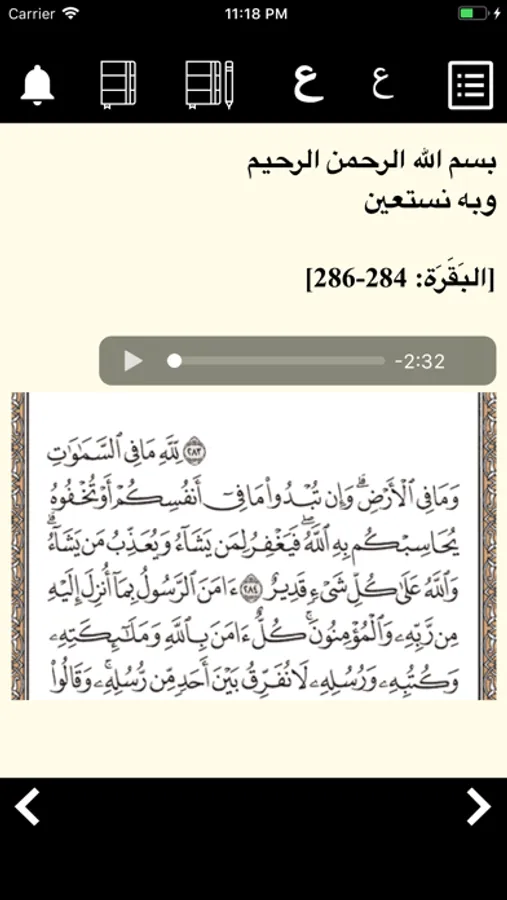 Carrier 11:18 PM
ع ع
بسم الله الرحمن الرحيم
وبه نستعين
[البَقَرَة: 284-286]
-2:32
٢٨٣ لِّلَّهِ مَا فِي السَّمَٰوَٰتِ
وَمَا فِي الْأَرْضِ ۗ وَإِن تُبْدُوا۟ مَا فِىٓ أَنفُسِكُمْ أَوْ تُخْفُوهُ
يُحَاسِبْكُم بِهِ اللَّهُ ۖ فَيَغْفِرُ لِمَن يَشَآءُ وَيُعَذِّبُ مَن يَشَآءُ ۗ
وَاللَّهُ عَلَىٰ كُلِّ شَىْءٍ قَدِيرٌ ٢٨٤ ءَامَنَ الرَّسُولُ بِمَآ أُنزِلَ إِلَيْهِ
مِن رَّبِّهِۦ وَالْمُؤْمِنُونَ ۚ كُلٌّ ءَامَنَ بِاللَّهِ وَمَلَٰٓئِكَتِهِۦ
وَكُتُبِهِۦ وَرُسُلِهِۦ لَا نُفَرِّقُ بَيْنَ أَحَدٍ مِّن رُّسُلِهِۦ ۚ وَقَالُوا۟